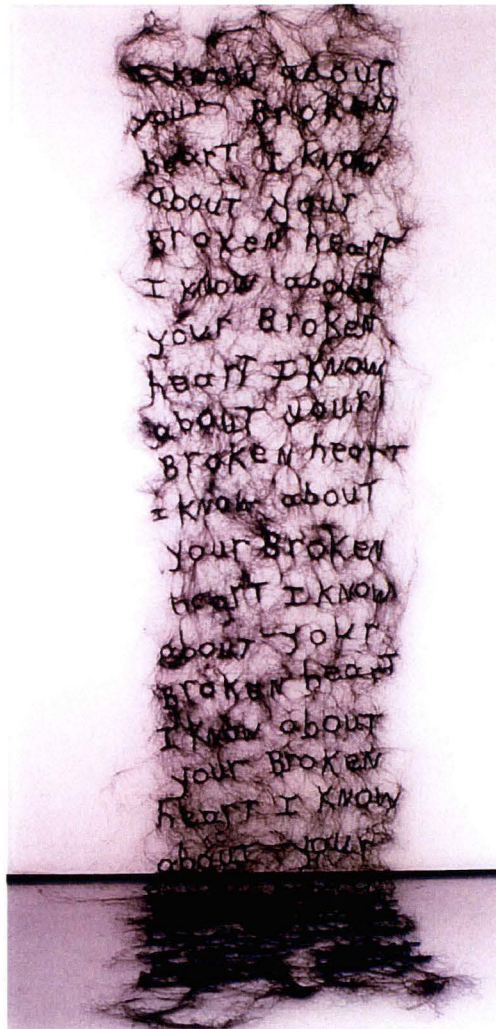 I know about
your Broken
heart I know
about your
Broken heart
I know about
your Broken
heart I know
about your
Broken heart
I know about
your Broken
heart I know
about your
Broken heart
I know about
your Broken
heart I know
about your